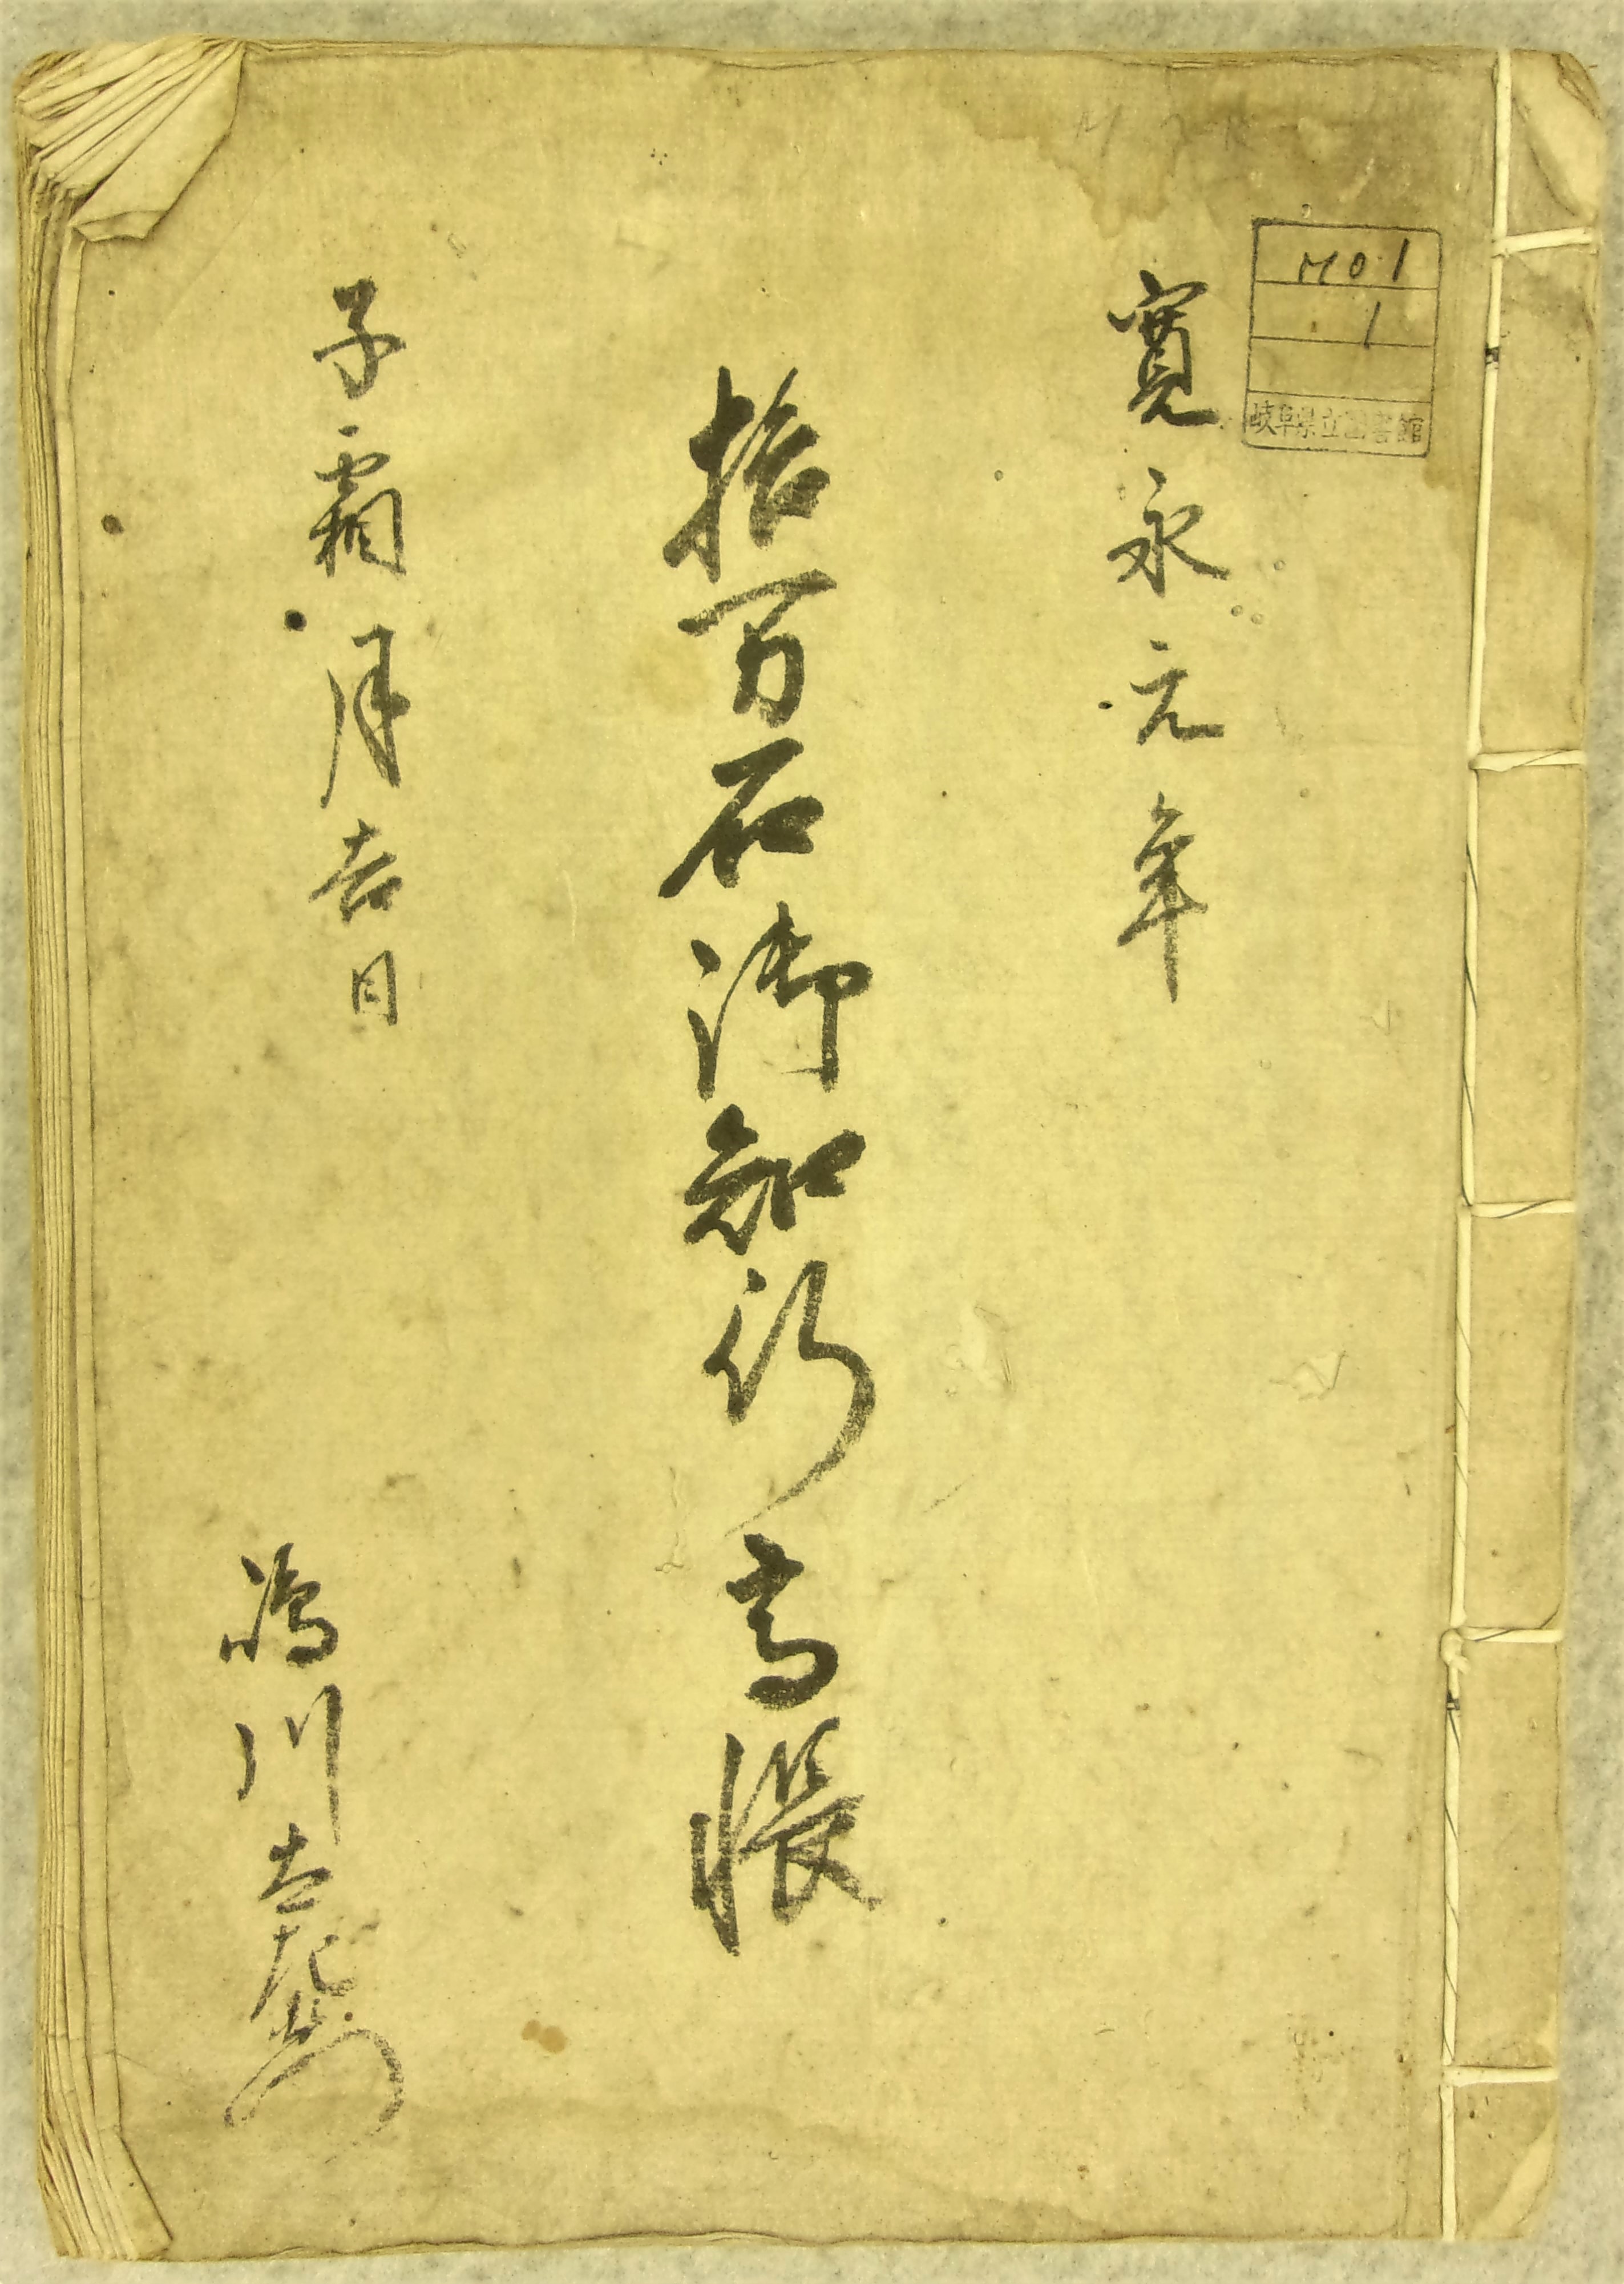 M0.1
1
岐阜県立図書館
寛永元年
拾万石御知行高帳
子霜月吉日
嶋川太左衛門